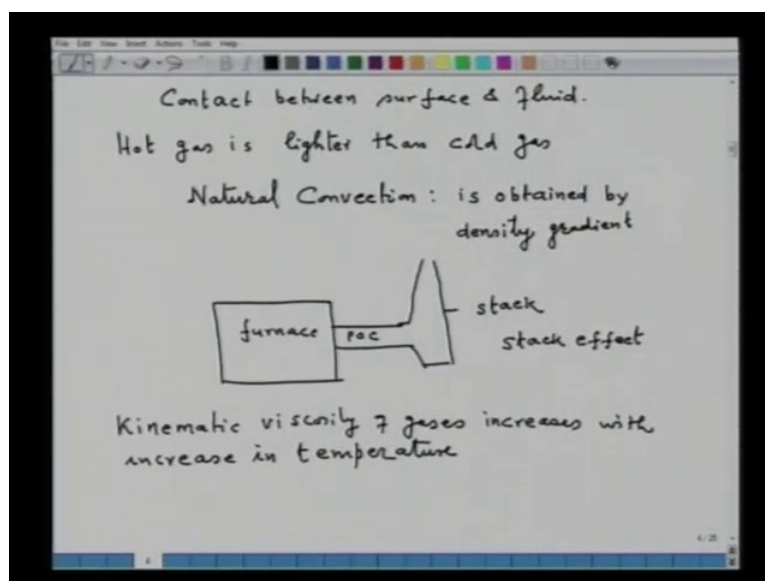 File Edit View Insert Actions Tools Help
Contact between surface & fluid.
Hot gas is lighter than cold gas
Natural Convection : is obtained by
density gradient
furnace
POC
stack
stack effect
Kinematic viscosity of gases increases with
increase in temperature
4/25
4